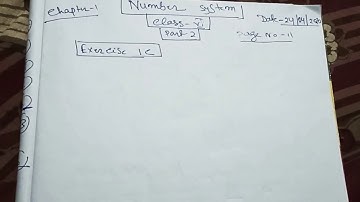 chapter-1 Number system Date-24/04/2020
class-VI
part-2 Page No-11
Exercise 1C